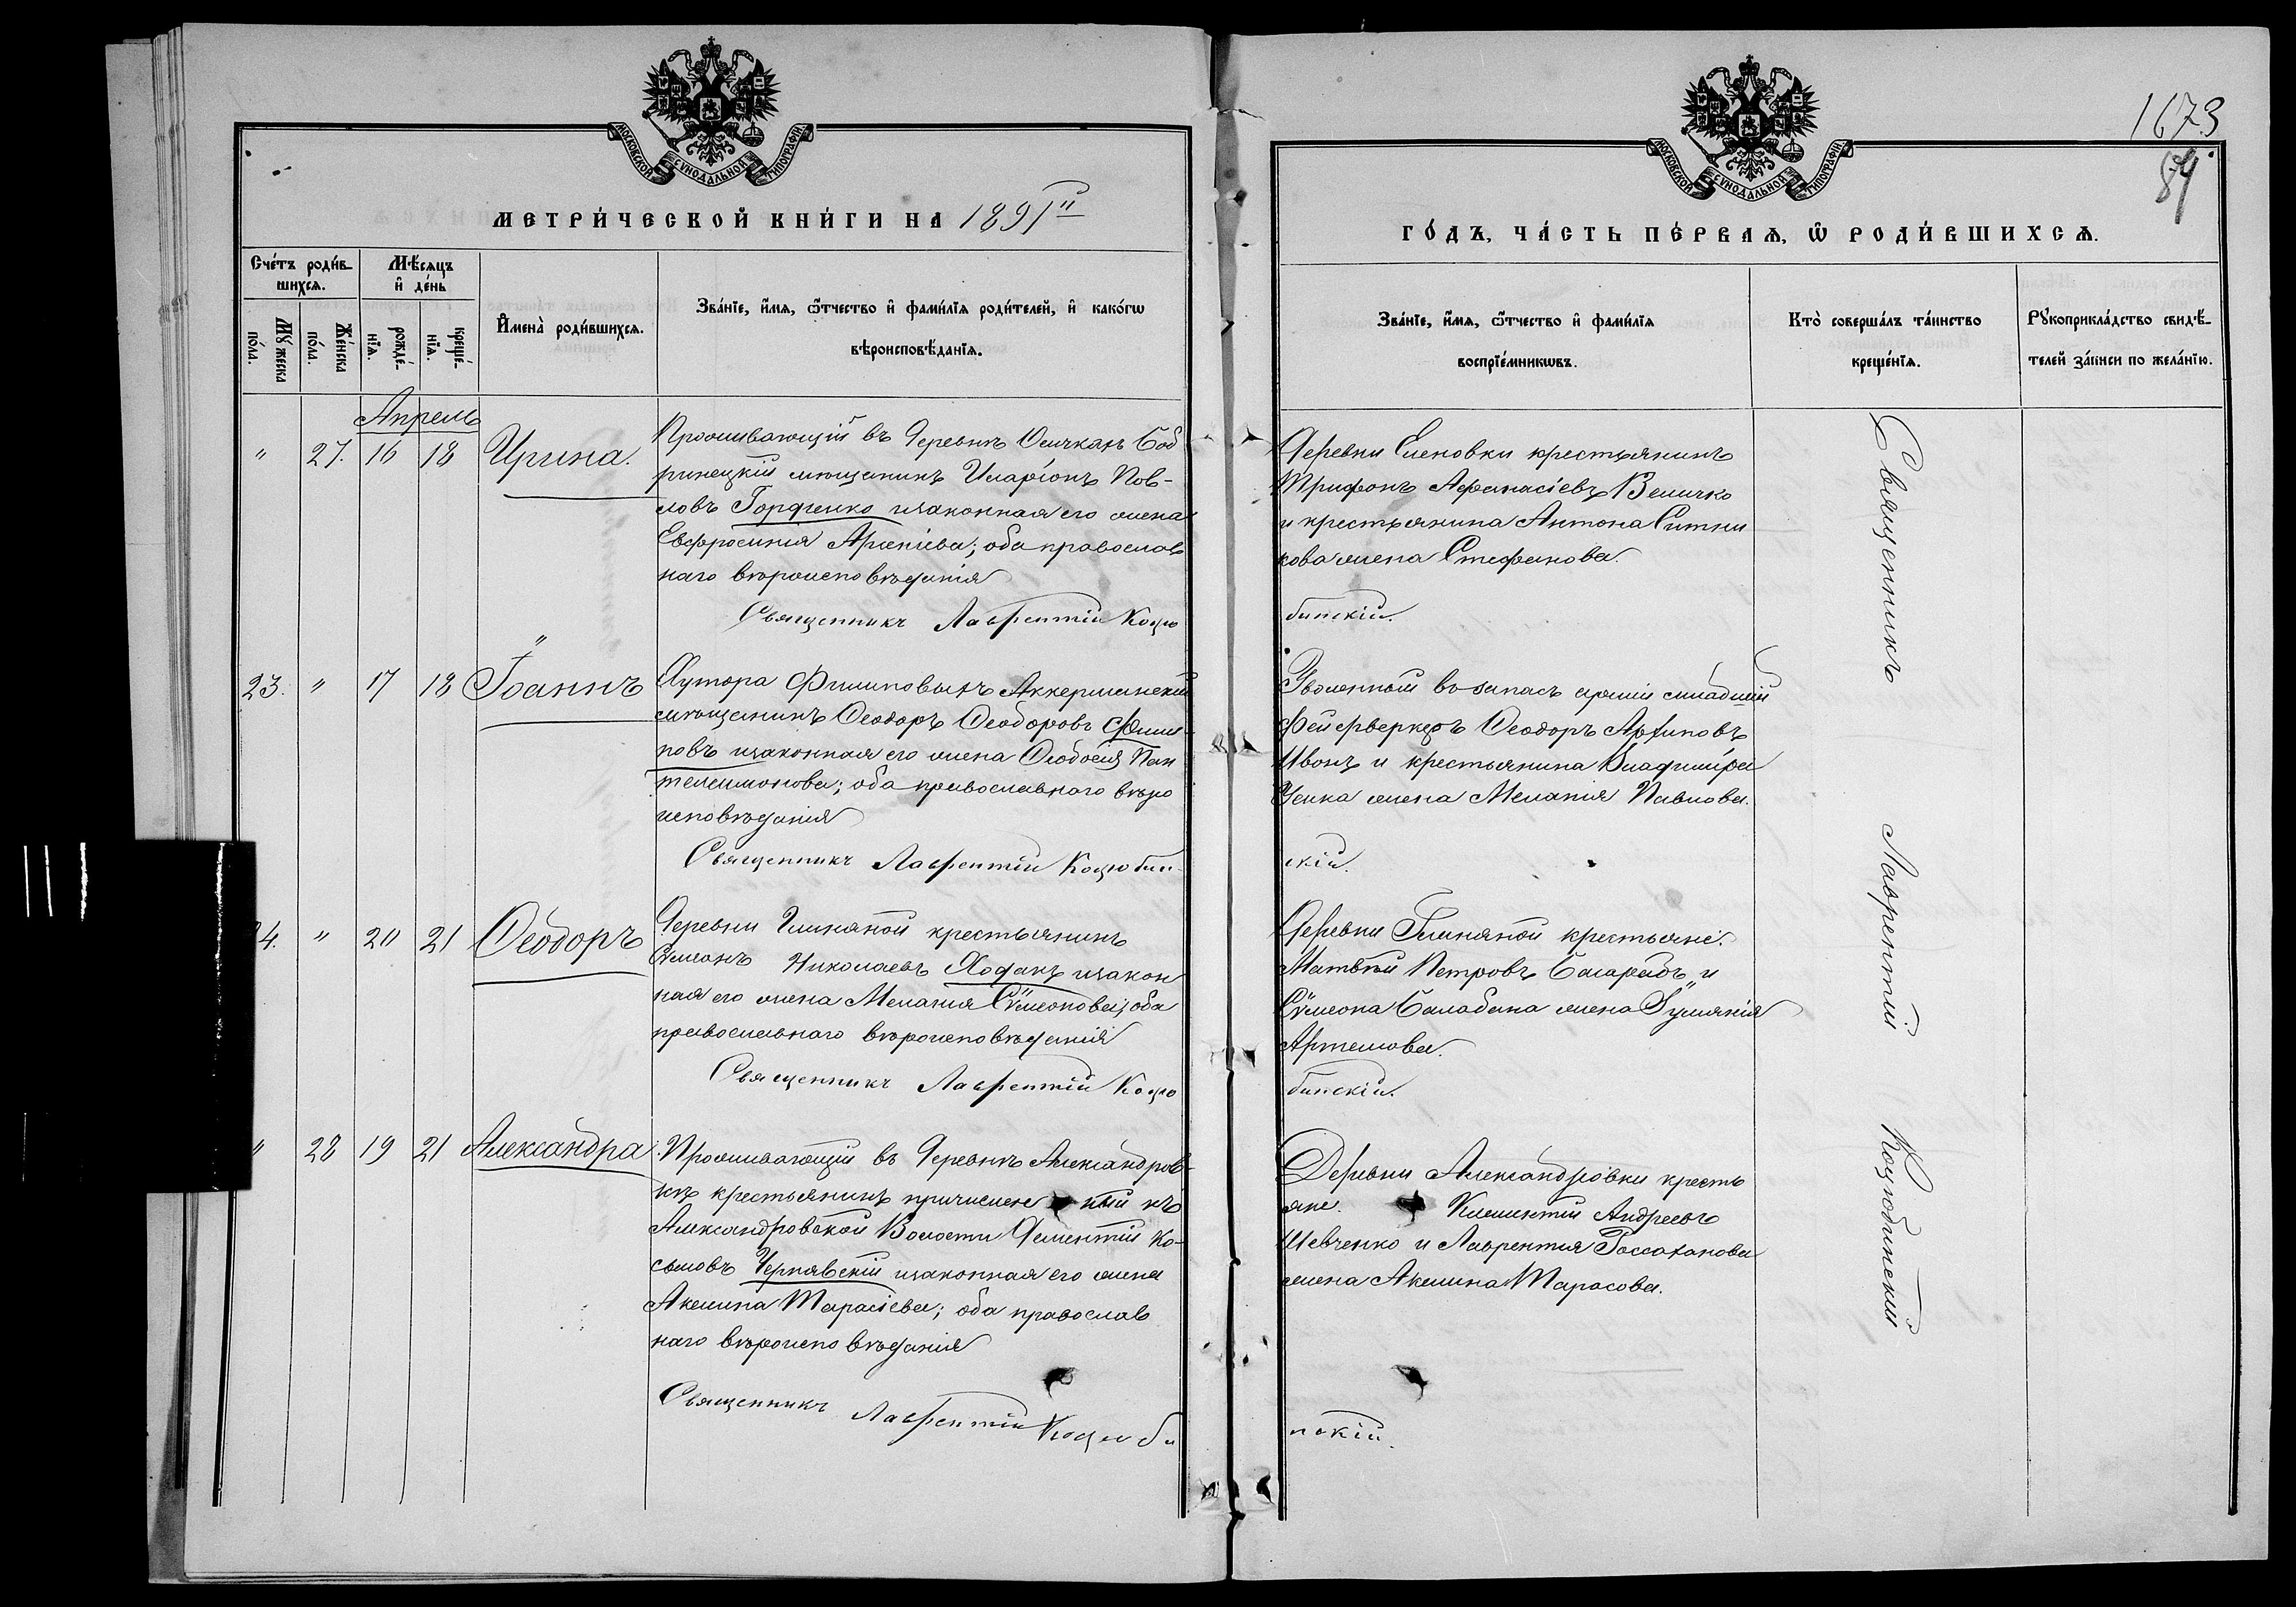 МОСКОВСКОЙ СУНОДАЛЬНОЙ ТИПОГРАФІИ
МЕТРИ́ЧЕСКОЙ КНИ́ГИ НА 1891й
Сче́тъ роди́в-
шихся.
Мѣ́сяцъ
и҆ де́нь
Мꙋ́жеска
по́ла.
Же́нска
по́ла.
рожде́-
нїя.
креще́-
нїя.
И҆мена̀ роди́вшихся.
Зва́нїе, и҆́мя, ѻ҆́тчество и҆ фами́лїя роди́телей, и҆ како́гѡ
вѣроисповѣ́данїя.
Апрель
" 27. 16 18 Ирина.
Проживающій въ деревнѣ Осичкахъ Боб
ринецкій мѣщанинъ Иларіонъ Пав-
ловъ Гордіенко и законная его жена
Евфросинія Арсеніева; оба православ
наго вѣроисповѣданія
Священникъ Лаврентій Коцю
23. " 17 18 Іоаннъ
Хутора Филиповыхъ Аккерманскій
мѣщанинъ Ѳеодоръ Ѳеодоровъ Фили-
повъ и законная его жена Ѳеодосія Пан
телеимонова; оба православнаго вѣро
исповѣданія
Священникъ Лаврентій Коцюбин-
24. " 20 21 Ѳеодоръ
Деревни Глиняной крестьянинъ
Симеонъ Николаевъ Ходакъ и закон
ная его жена Меланія Сѵмеонова; оба
православнаго вѣроисповѣданія
Священникъ Лаврентій Коцю
" 28 19 21 Александра.
Проживающій въ деревнѣ Александров-
кѣ крестьянинъ причислен ный къ
Александровской Волости Дементій Ко-
сьмовъ Чернявскій и законная его жена
Акилина Тарасіева; оба православ
наго вѣроисповѣданія
Священникъ Лаврентій Коцюби
1673
84
МОСКОВСКОЙ СУНОДАЛЬНОЙ ТИПОГРАФІИ
ГО́ДЪ, ЧА́СТЬ ПЕ́РВАЯ, Ѡ҆ РОДИ́ВШИХСЯ.
Зва́нїе, и҆́мя, ѻ҆́тчество и҆ фами́лїя
воспрїе́мникѡвъ.
Кто̀ соверша́лъ та́инство
креще́нїя.
Рꙋкоприкла́дство свидѣ́-
телей за́писи по жела́нїю.
Деревни Еленовки крестьянинъ
Трифонъ Афанасіевъ Величко
и крестьянина Антона Ситни
кова жена Стефанова.
бинскій.
Уволенный въ запасъ арміи младшій
фейерверкеръ Ѳеодоръ Архиповъ
Ивонъ и крестьянина Владиміра
Усика жена Меланія Павлова.
скій.
Деревни Глиняной крестьяне:
Матвѣй Петровъ и
Сѵмеона Балабана жена Іуліанія
Артемова.
бинскій.
Деревни Александровки кресть
яне. Климентій Андреевъ
Шевченко и Лаврентія Россоханова
жена Акилина Тарасова.
нскій.
Священникъ Лаврентій Коцюбинскій